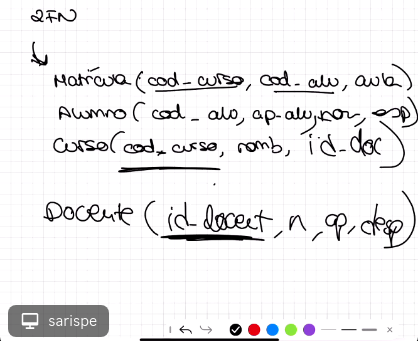 2FN
Matrícula (cod_curso, cod_alu, aula)
Alumno (cod_alu, ap_alu, nom, esp)
Curso (cod_curso, nomb, id_doc)
Docente (id_docent, n, ap, desp)
sarispe